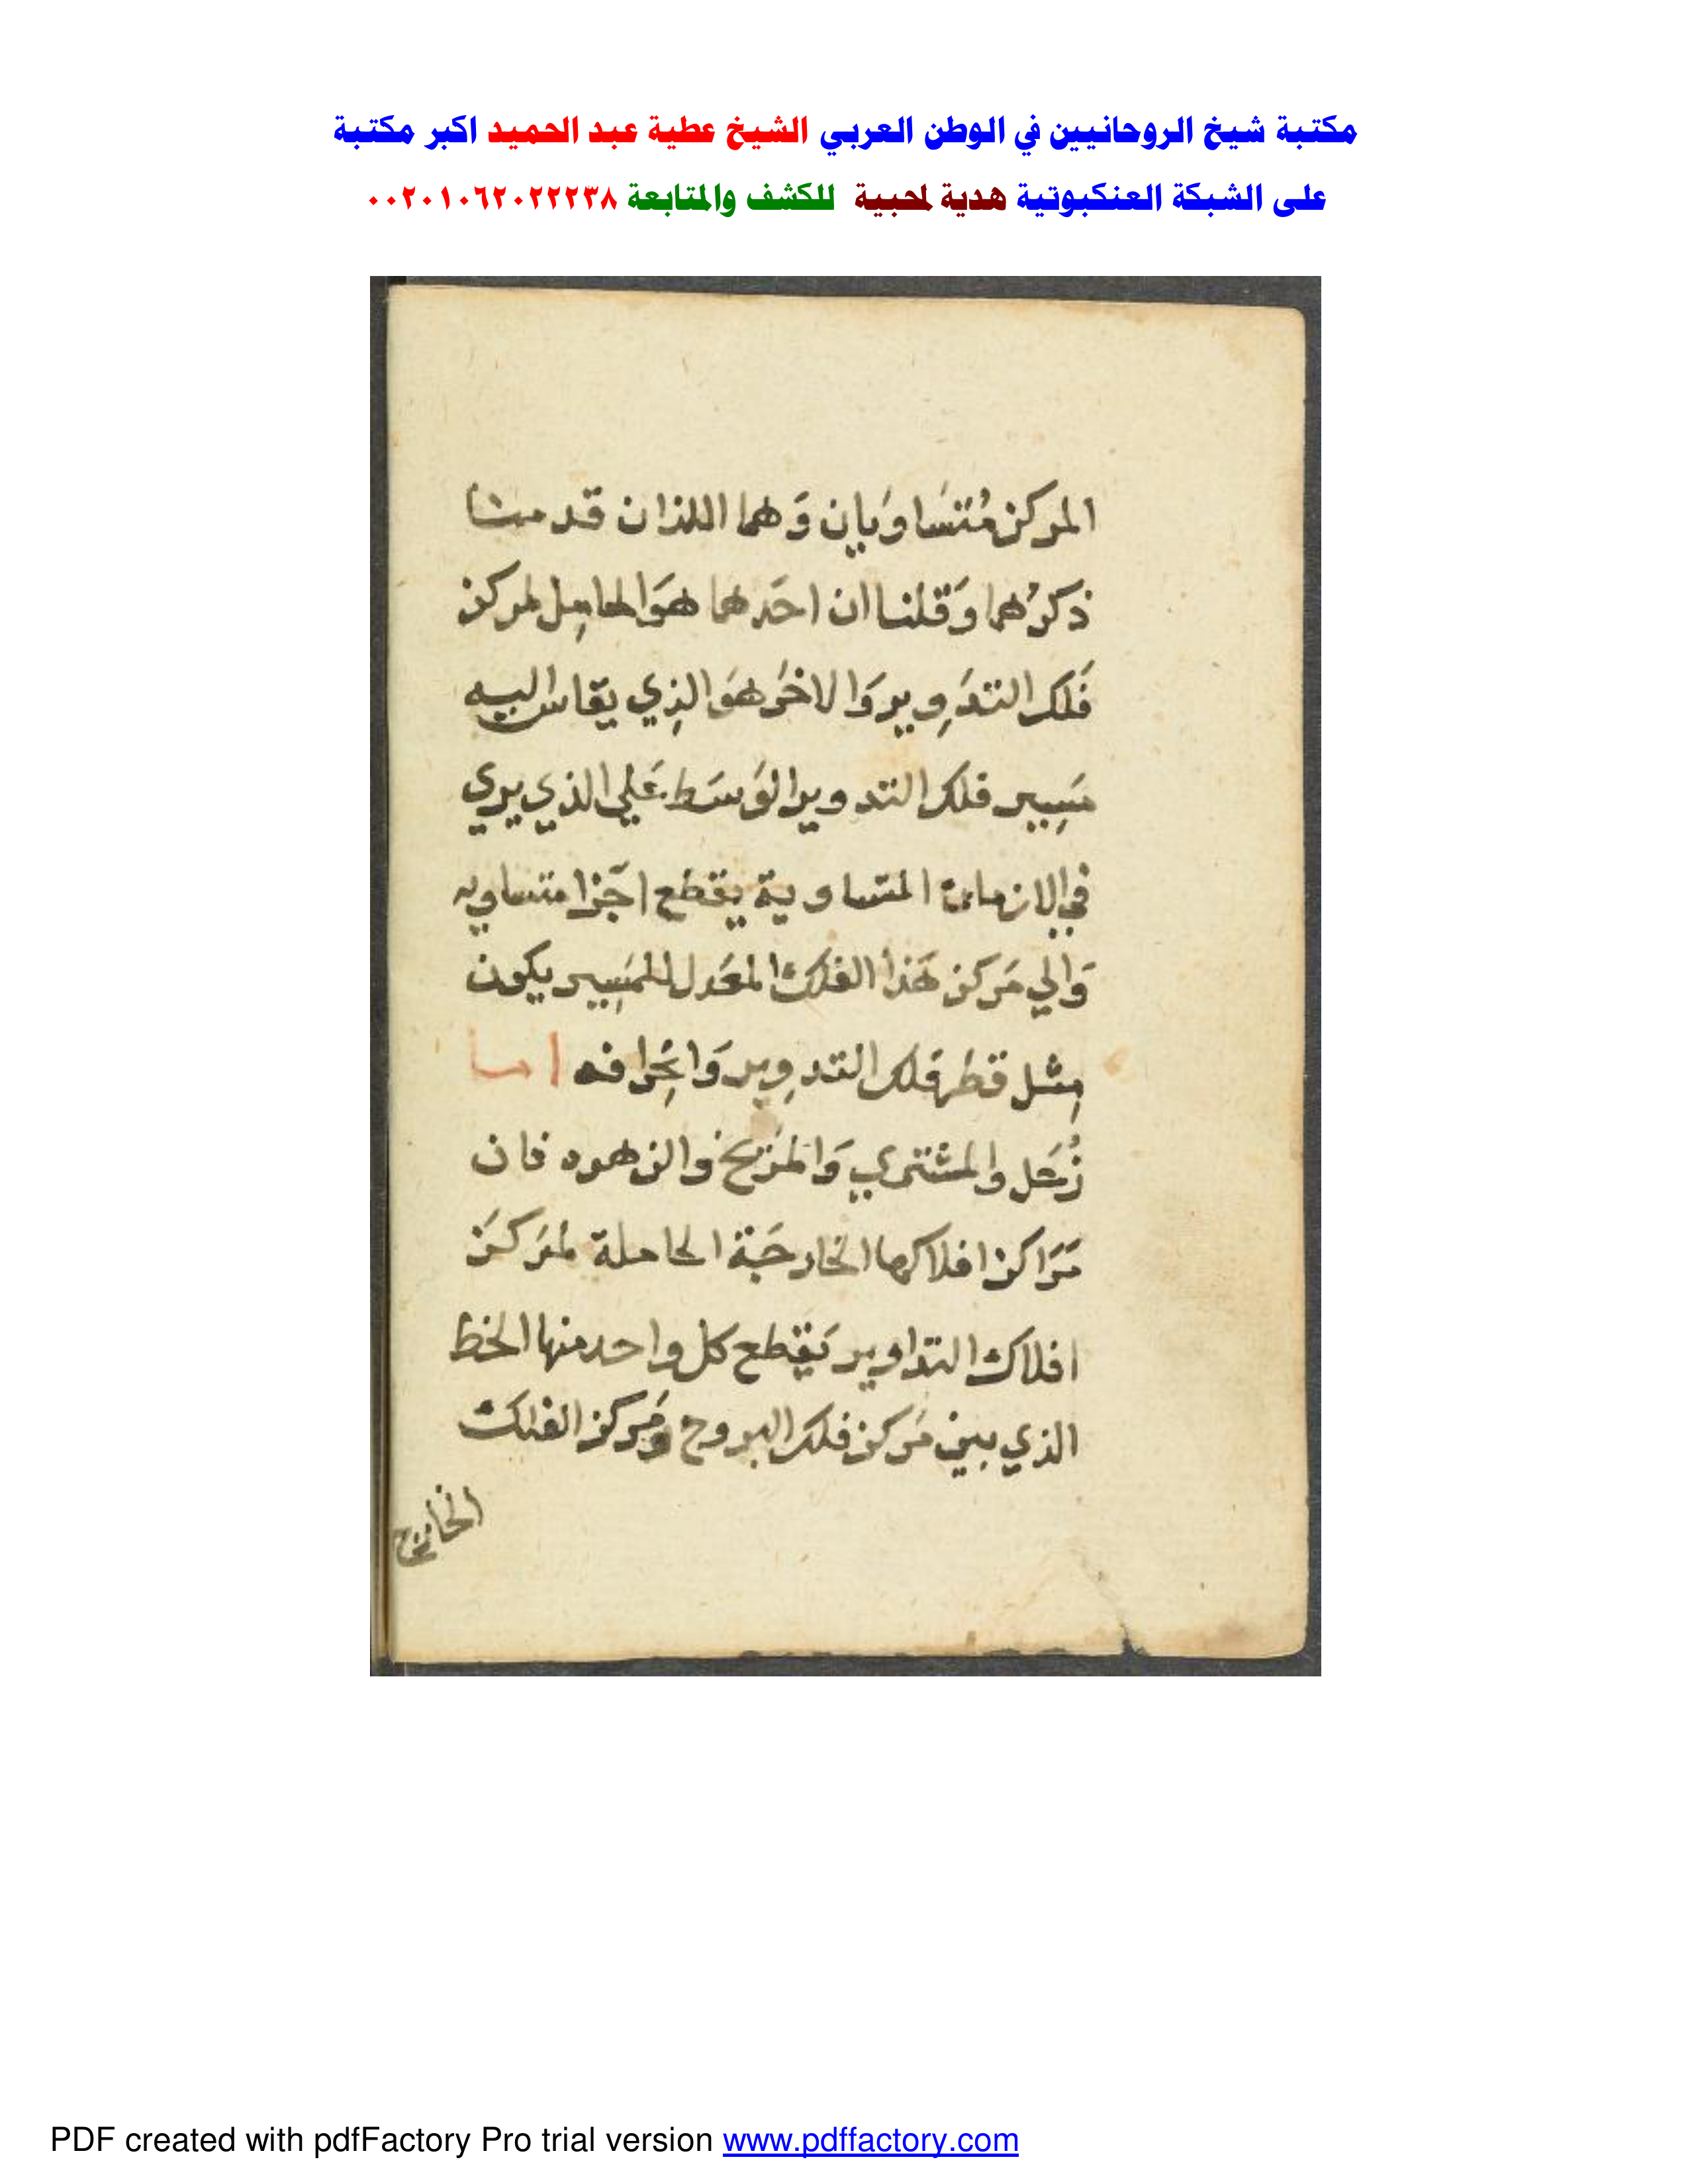 مكتبة شيخ الروحانيين في الوطن العربي الشيخ عطية عبد الحميد اكبر مكتبة
على الشبكة العنكبوتية هدية لمحبية للكشف والمتابعة ٠٠٢٠١٠٦٢٠٢٢٢٣٨
المركز مُتَسَاوَيان وَهما اللذان قد
ذكرُهما وَقلنا ان احَدهما هوَ الحامِل لمركز
فَلك التدَوِير وَالاخرَ هوَ الذِي يقاس اليه
مَسِير فلك التدوير الوَسَط عَلي الذي يري
في الازمان المتساوية يقطع اجَزا متساويه
وَالي مَركز هَذا الفلك المعَدل للمَسِير يكون
مِثل قطر فَلك التدوِير وَانِحرافه اما
زُحَل والمشتري وَالمرَيخ والزهره فان
مَرَاكز افلاكها الخارجَة الحاملة لمَركَز
افلاك التداوير يَقطع كل واحد منها الخط
الذي بين مَركز فلك البروج وَمَركز الفلك
الخارج
PDF created with pdfFactory Pro trial version www.pdffactory.com